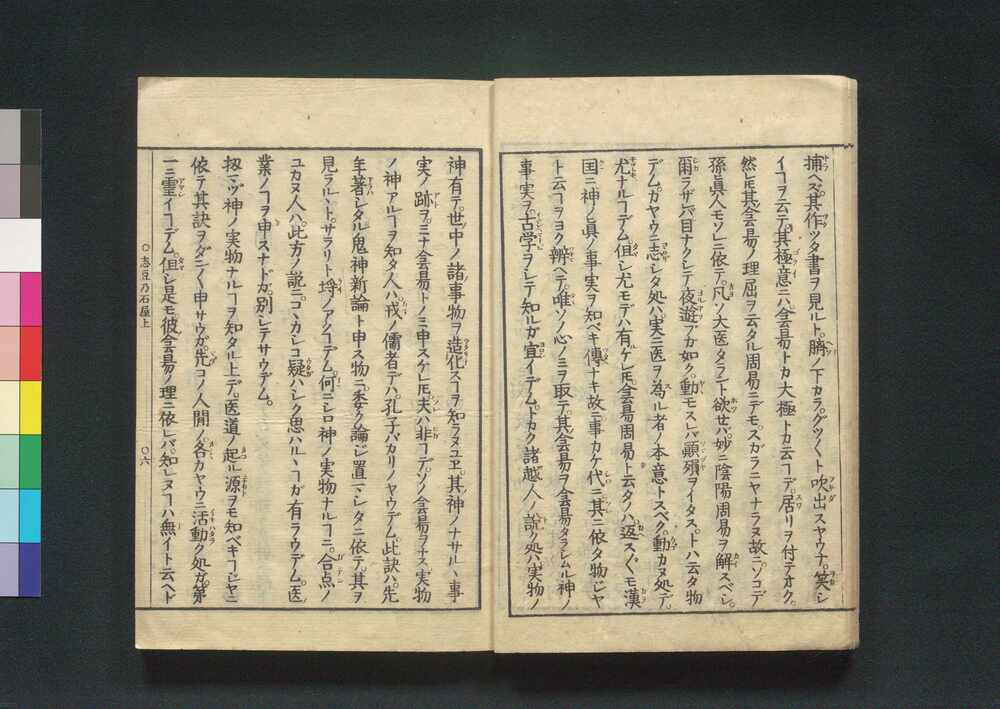 捕ヘズ。其作ツタ書ヲ見ルト。臍ノ下カラ。グツ〱ト吹出スヤウナ。笑シ
イヿヲ云テ。其極意ニハ会易トカ大極トカ云ヿデ。居リヲ付テオク。
然レ𪜈其会易ノ理屈ヲ云タル周易ニデモ。スガラニヤナラヌ故ニ。ソコデ
孫真人モソレニ依テ。凡ソ大医タラント欲セバ。妙ニ陰陽周易ヲ解スベシ。
爾ラザバ。目ナクシテ夜遊ブガ如ク。動モスレバ顚殞ヲイタス。トハ云タ物
デム。カヤウニ志シタ処ハ。実ニ医ヲ為ル者ノ本意トスベク。動カヌ処デ。
尤ナルヿデム。但シ尤モデハ有ルケレ𪜈。会易周易ト云タノハ。返ス〲モ漢
国ニ神ノ真ノ事実ヲ知ベキ傳ナキ故ニ。事カケ代ニ其ニ依タ物ジヤ
ト云ヿヲヨク辨ヘテ。唯ソノ心ノミヲ取テ。其会易ヲ会易タラシムル神ノ
事実ヲ。古学ヲシテ知ルガ宜イデム。トカク諸越人ノ説ク処ハ。実物ノ
神有テ。世ノ中ノ諸事物ヲ造化スヿヲ知ラヌユヱ。其神ノナサルヽ事
実ノ跡ヲ。ミナ会易トノミ申スケレ𪜈。夫ハ非ヿデ。ソノ会易ヲナス。実物
ノ神アルヿヲ知タ人ハ。戎ノ儒者デハ。孔子バカリノヤウデム。此訣ハ。先
年著シタル鬼神新論ト申ス物ニ。委ク論ジ置マシタニ依テ。其ヲ
見ラルヽト。サラリト埒ノアクヿデム。何ニシロ神ノ実物ナルヿニ。合点ノ
ユカヌ人ハ。此方ノ説ニ。コヽカシコ疑ハシク思ハルヽヿガ有ラウデム。医
業ノヿヲ申スナドガ。別シテサウデム。
扨マヅ神ノ実物ナルヿヲ知タル上デ。医道ノ起ル源ヲモ知ベキヿジヤニ
依テ。其訣ヲダン〱申サウガ。先コノ人間ノ。各カヤウニ活動ク処ガ。第
一ニ霊イヿデム。但シ是モ彼会易ノ理ニ依レバ。知レヌヿハ無イト云ヘド
○志豆乃石屋上
○六